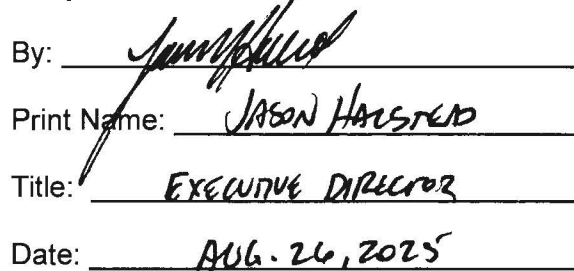 By:
Print Name: JASON HALSTEAD
Title: EXECUTIVE DIRECTOR
Date: AUG. 26, 2025